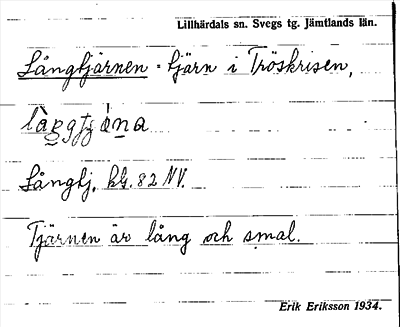 Lillhärdals sn. Svegs tg. Jämtlands län.
Långtjärnen - tjärn i Tröskrisen,
Långtj. kbl. 82 NV.
Tjärnen är lång och smal.
Erik Eriksson 1934.